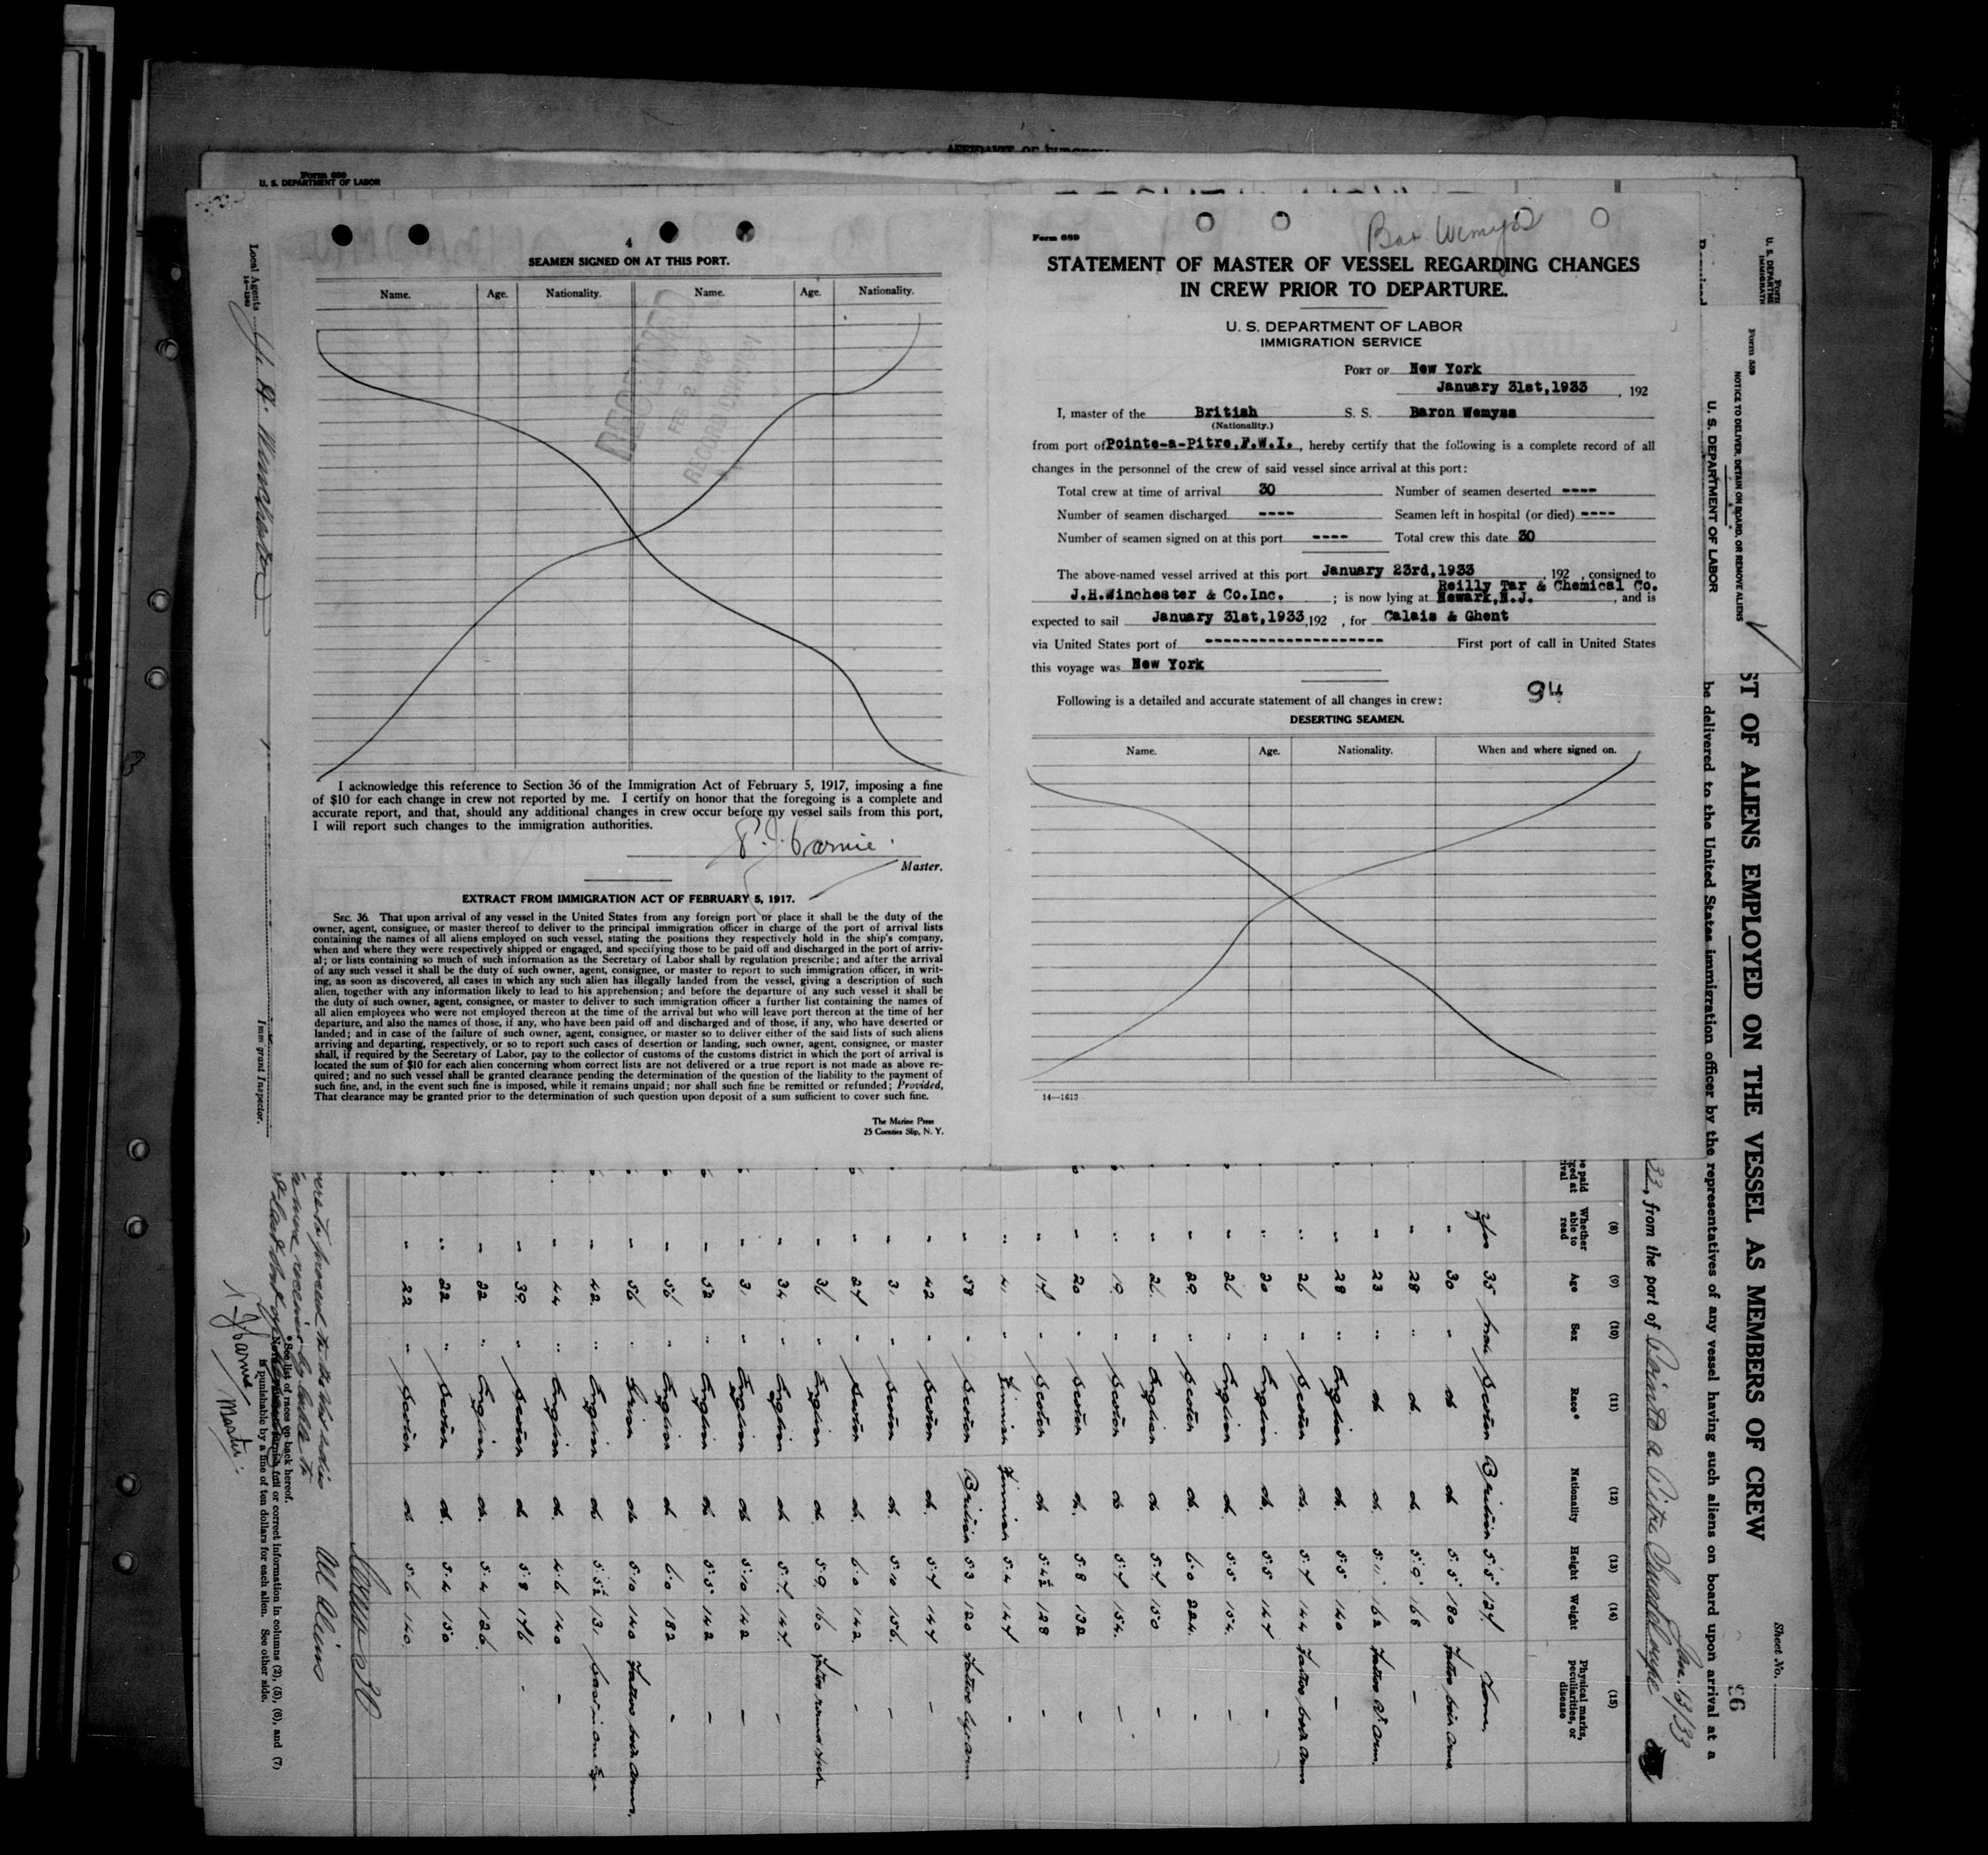 AFFIDAVIT OF SURGEON
Form 689
U. S. DEPARTMENT OF LABOR
4
SEAMEN SIGNED ON AT THIS PORT.
Name. Age. Nationality. Name. Age. Nationality.
FEB 2
RECORD DIVISION
I acknowledge this reference to Section 36 of the Immigration Act of February 5, 1917, imposing a fine
of $10 for each change in crew not reported by me. I certify on honor that the foregoing is a complete and
accurate report, and that, should any additional changes in crew occur before my vessel sails from this port,
I will report such changes to the immigration authorities.
Master.
EXTRACT FROM IMMIGRATION ACT OF FEBRUARY 5, 1917.
SEC. 36. That upon arrival of any vessel in the United States from any foreign port or place it shall be the duty of the
owner, agent, consignee, or master thereof to deliver to the principal immigration officer in charge of the port of arrival lists
containing the names of all aliens employed on such vessel, stating the positions they respectively hold in the ship's company,
when and where they were respectively shipped or engaged, and specifying those to be paid off and discharged in the port of arriv-
al; or lists containing so much of such information as the Secretary of Labor shall by regulation prescribe; and after the arrival
of any such vessel it shall be the duty of such owner, agent, consignee, or master to report to such immigration officer, in writ-
ing, as soon as discovered, all cases in which any such alien has illegally landed from the vessel, giving a description of such
alien, together with any information likely to lead to his apprehension; and before the departure of any such vessel it shall be
the duty of such owner, agent, consignee, or master to deliver to such immigration officer a further list containing the names of
all alien employees who were not employed thereon at the time of the arrival but who will leave port thereon at the time of her
departure, and also the names of those, if any, who have been paid off and discharged and of those, if any, who have deserted or
landed; and in case of the failure of such owner, agent, consignee, or master so to deliver either of the said lists of such aliens
arriving and departing, respectively, or so to report such cases of desertion or landing, such owner, agent, consignee, or master
shall, if required by the Secretary of Labor, pay to the collector of customs of the customs district in which the port of arrival is
located the sum of $10 for each alien concerning whom correct lists are not delivered or a true report is not made as above re-
quired; and no such vessel shall be granted clearance pending the determination of the question of the liability to the payment of
such fine, and, in the event such fine is imposed, while it remains unpaid; nor shall such fine be remitted or refunded; Provided,
That clearance may be granted prior to the determination of such question upon deposit of a sum sufficient to cover such fine.
The Marine Press
25 Coenties Slip, N. Y.
Form 689
Bar Wemyss
STATEMENT OF MASTER OF VESSEL REGARDING CHANGES
IN CREW PRIOR TO DEPARTURE.
U. S. DEPARTMENT OF LABOR
IMMIGRATION SERVICE
PORT OF New York
January 31st,1933, 192
I, master of the British S. S. Baron Wemyss
(Nationality.)
from port of Pointe-a-Pitre,F.W.I., hereby certify that the following is a complete record of all
changes in the personnel of the crew of said vessel since arrival at this port:
Total crew at time of arrival 30 Number of seamen deserted ----
Number of seamen discharged ---- Seamen left in hospital (or died) ----
Number of seamen signed on at this port ---- Total crew this date 30
The above-named vessel arrived at this port January 23rd,1933, 192 , consigned to
Reilly Tar & Chemical Co.
J.H.Winchester & Co.Inc. ; is now lying at Newark,N.J. , and is
expected to sail January 31st,1933, 192 , for Calais & Ghent
via United States port of -------------------- First port of call in United States
this voyage was New York
Following is a detailed and accurate statement of all changes in crew: 94
DESERTING SEAMEN.
Name. Age. Nationality. When and where signed on.
14—1613
Local Agents J. H. Winchester
Immigrant Inspector.
Form 559
NOTICE TO DELIVER, DETAIN ON BOARD, OR REMOVE ALIENS
U. S. DEPARTMENT OF LABOR
Sheet No.
96
ST OF ALIENS EMPLOYED ON THE VESSEL AS MEMBERS OF CREW
be delivered to the United States immigration officer by the representatives of any vessel having such aliens on board upon arrival at a
Jan. 13/33
33, from the port of Pointe a Pitre Guadeloupe
(8) (9) (10) (11) (12) (13) (14) (15)
Whether able to read Age Sex Race* Nationality Height Weight Physical marks, peculiarities, or disease
Yes 35 male Scotch British 5.5 127 None
" 30 " do do 5.5 180 Tattoo both arms
" 28 " do do 5.9 168 –
" 23 " do do 5.11 162 Tattoo R. Arm.
" 28 " English do 5.5 140 –
" 26 " Scotch do 5.7 144 Tattoo both arms
" 20 " English do 5.5 147 –
" 26 " English do 5.5 154 –
" 29 " Scotch do 6.0 224 –
" 26 " English do 5.7 150 –
" 19 " Scotch do 5.7 154 –
" 20 " Scotch do 5.8 132 –
" 19 " Scotch do 5.4½ 128 –
" 41 " Finnish Finnish 5.4 147 –
" 58 " Scotch British 5.3 120
" 42 " Scotch do 5.7 147 –
" 31 " Scotch do 5.10 156 –
" 27 " Scotch do 6.0 142 –
" 36 " English do 5.9 160
" 34 " English do 5.7 147 –
" 31 " English do 5.10 142 –
" 52 " English do 5.5 142 –
" 56 " English do 6.0 182 –
" 56 " do 5.10 140 Tattoo both arms.
" 42 " English do 5.5½ 131
" 44 " English do 140 –
" 39 " Scotch do 5.8 176 –
" 22 " English do 5.4 126
" 22 " Scotch do 5.4 150
" 22 " Scotch do 5.6 140
*See list of races on back hereof.
full or correct information in columns (2), (5), (6), and (7)
is punishable by a fine of ten dollars for each alien. See other side.
Master